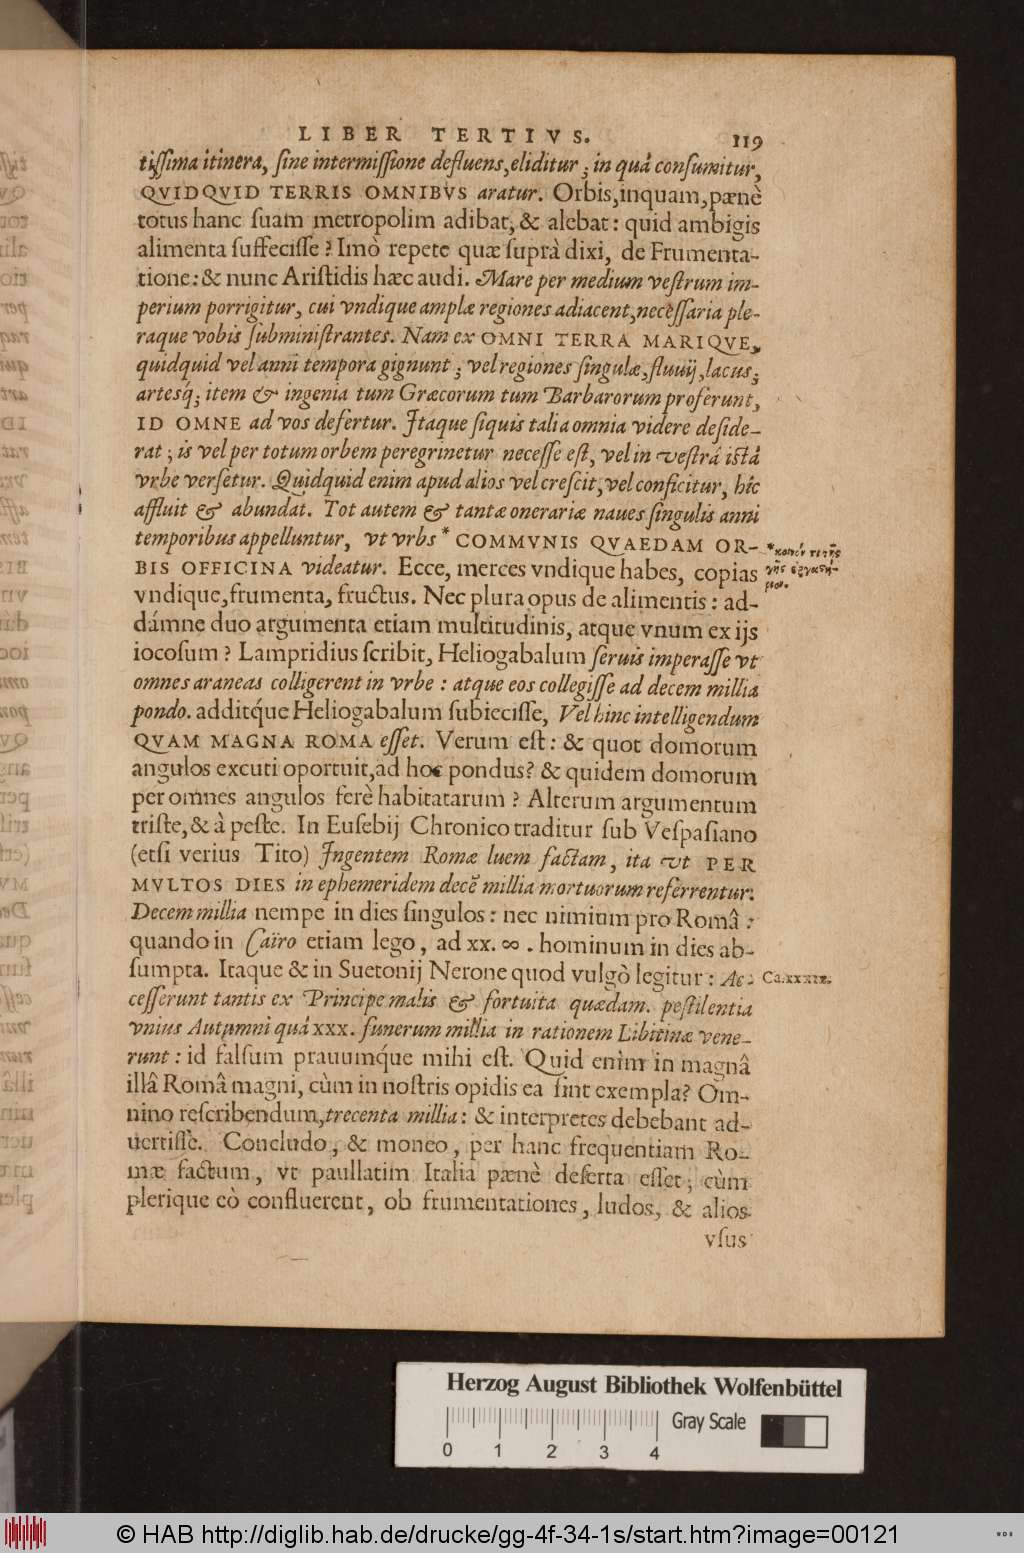 LIBER TERTIVS. 119
tißima itinera, ſine intermißione defluens, eliditur; in quâ conſumitur,
QVIDQVID TERRIS OMNIBVS aratur. Orbis, inquam, pænè
totus hanc ſuam metropolim adibat, & alebat: quid ambigis
alimenta ſuffeciſſe? Imò repete quæ ſuprà dixi, de Frumenta-
tione: & nunc Ariſtidis hæc audi. Mare per medium veſtrum im-
perium porrigitur, cui vndique amplæ regiones adiacent, neceſſaria ple-
raque vobis ſubminiſtrantes. Nam ex OMNI TERRA MARIQVE,
quidquid vel anni tempora gignunt; vel regiones ſingulæ, fluuij, lacus;
artesq́; item & ingenia tum Græcorum tum Barbarorum proferunt,
ID OMNE ad vos defertur. Itaque ſiquis talia omnia videre deſide-
rat; is vel per totum orbem peregrinetur neceſſe eſt, vel in veſtrâ iſtâ
vrbe verſetur. Quidquid enim apud alios vel creſcit, vel conficitur, hîc
affluit & abundat. Tot autem & tantæ onerariæ naues ſingulis anni
temporibus appelluntur, vt vrbs * COMMVNIS QVAEDAM OR-
BIS OFFICINA videatur. Ecce, merces vndique habes, copias
vndique, frumenta, fructus. Nec plura opus de alimentis: ad-
dámne duo argumenta etiam multitudinis, atque vnum ex ijs
iocoſum? Lampridius ſcribit, Heliogabalum ſeruis imperaſſe vt
omnes araneas colligerent in vrbe: atque eos collegiſſe ad decem millia
pondo. additq́ue Heliogabalum ſubieciſſe, Vel hinc intelligendum
QVAM MAGNA ROMA eſſet. Verum eſt: & quot domorum
angulos excuti oportuit, ad hoc pondus? & quidem domorum
per omnes angulos ferè habitatarum? Alterum argumentum
triſte, & à peſte. In Euſebij Chronico traditur ſub Veſpaſiano
(etſi verius Tito) Ingentem Romæ luem factam, ita vt PER
MVLTOS DIES in ephemeridem decē millia mortuorum referrentur.
Decem millia nempe in dies ſingulos: nec nimium pro Româ:
quando in Caïro etiam lego, ad xx. ∞. hominum in dies ab-
ſumpta. Itaque & in Suetonij Nerone quod vulgò legitur: Ac-
ceſſerunt tantis ex Principe malis & fortuita quædam. peſtilentia
vnius Autumni quâ xxx. funerum millia in rationem Libitinæ vene-
runt: id falſum prauumq́ue mihi eſt. Quid enim in magnâ
illâ Româ magni, cùm in noſtris opidis ea ſint exempla? Om-
nino reſcribendum, trecenta millia: & interpretes debebant ad-
uertiſſe. Concludo, & moneo, per hanc frequentiam Ro-
mæ factum, vt paullatim Italia pænè deſerta eſſet; cùm
plerique eò confluerent, ob frumentationes, ludos, & alios
vſus
* κοινόν τι τῆς
γῆς ἐργαστή-
ριον.
Ca.xxxix.
Herzog August Bibliothek Wolfenbüttel
Gray Scale
0 1 2 3 4
© HAB http://diglib.hab.de/drucke/gg-4f-34-1s/start.htm?image=00121